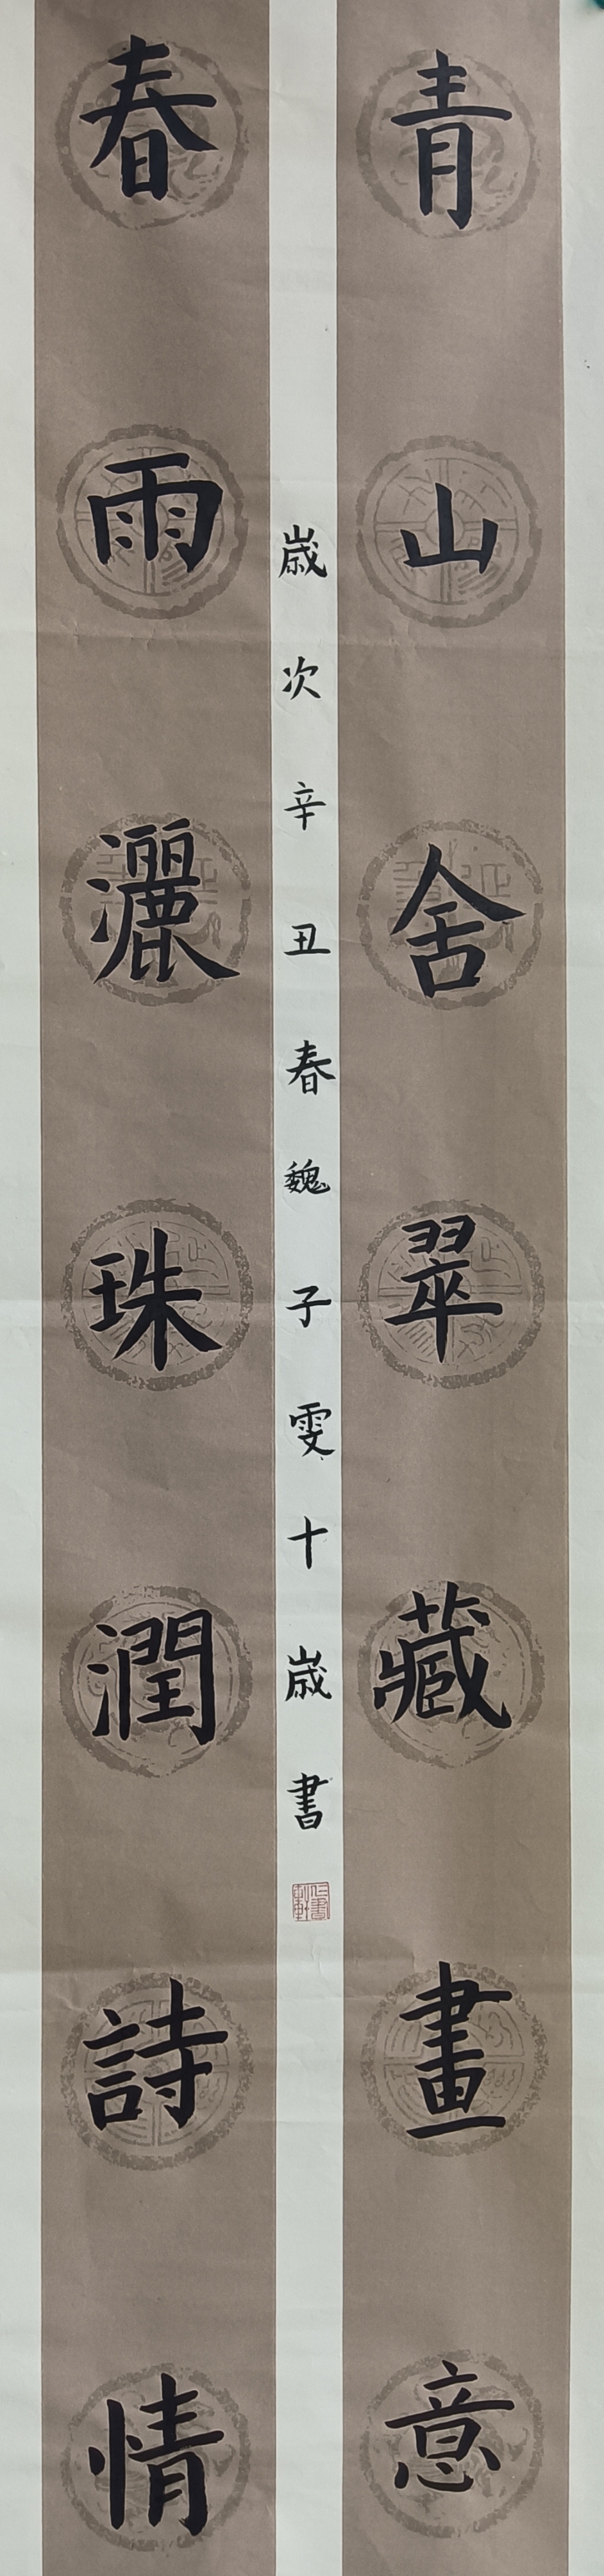 青山舍翠藏畫意
春雨灑珠潤詩情
嵗次辛丑春魏子雯十嵗書